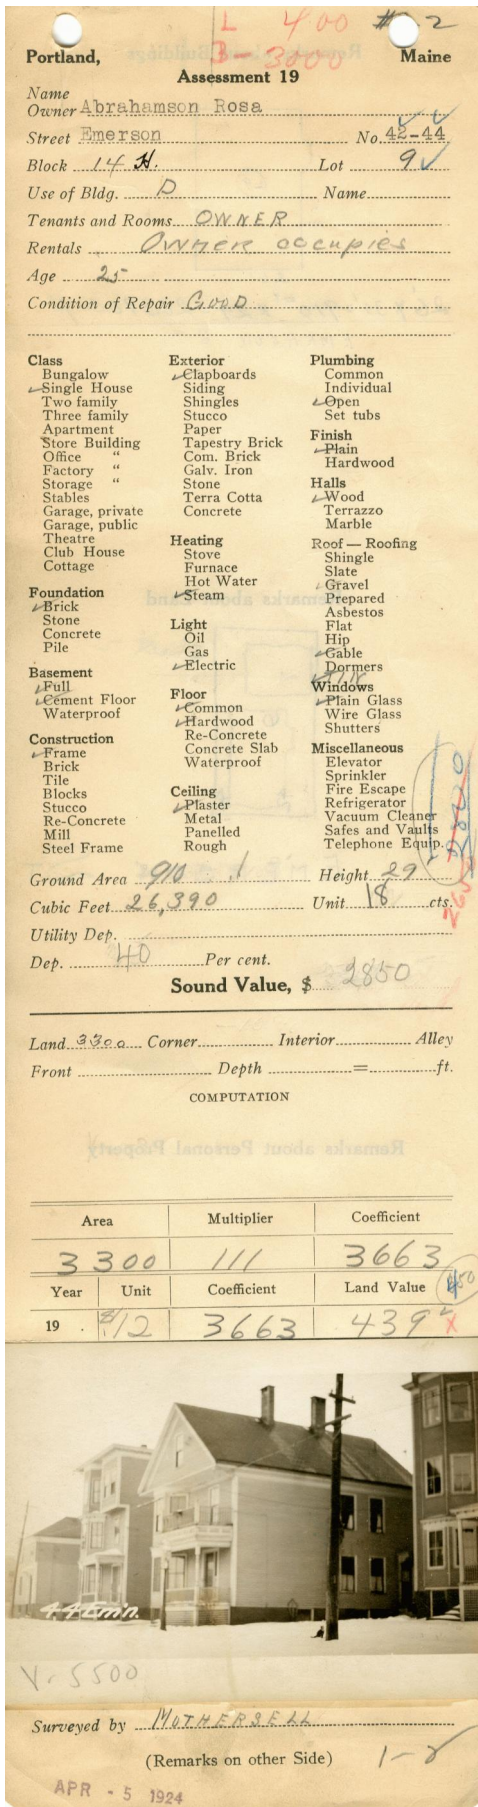 L 400 # 2
B-3000
Portland, Maine
Assessment 19
Name
Owner Abrahamson Rosa
Street Emerson No. 42-44
Block 14 H. Lot 9
Use of Bldg. D Name
Tenants and Rooms OWNER
Rentals Owner occupies
Age 25
Condition of Repair GOOD
Class
Bungalow
Single House
Two family
Three family
Apartment
Store Building
Office "
Factory "
Storage "
Stables
Garage, private
Garage, public
Theatre
Club House
Cottage
Foundation
Brick
Stone
Concrete
Pile
Basement
Full
Cement Floor
Waterproof
Construction
Frame
Brick
Tile
Blocks
Stucco
Re-Concrete
Mill
Steel Frame
Exterior
Clapboards
Siding
Shingles
Stucco
Paper
Tapestry Brick
Com. Brick
Galv. Iron
Stone
Terra Cotta
Concrete
Heating
Stove
Furnace
Hot Water
Steam
Light
Oil
Gas
Electric
Floor
Common
Hardwood
Re-Concrete
Concrete Slab
Waterproof
Ceiling
Plaster
Metal
Panelled
Rough
Plumbing
Common
Individual
Open
Set tubs
Finish
Plain
Hardwood
Halls
Wood
Terrazzo
Marble
Roof — Roofing
Shingle
Slate
Gravel
Prepared
Asbestos
Flat
Hip
Gable
Dormers
Windows
Plain Glass
Wire Glass
Shutters
Miscellaneous
Elevator
Sprinkler
Fire Escape
Refrigerator
Vacuum Cleaner
Safes and Vaults
Telephone Equip.
Ground Area 910 Height 29
Cubic Feet 26,390 Unit 18 cts.
Utility Dep.
Dep. 40 Per cent.
Sound Value, $ 2850
Land 3300 Corner Interior Alley
Front Depth = ft.
COMPUTATION
Area Multiplier Coefficient
3300 111 3663
Year Unit Coefficient Land Value 450
19 12 3663 439
44 Em'n.
V-5500
Surveyed by MOTHERSELL
(Remarks on other Side) 1-2
APR - 5 1924